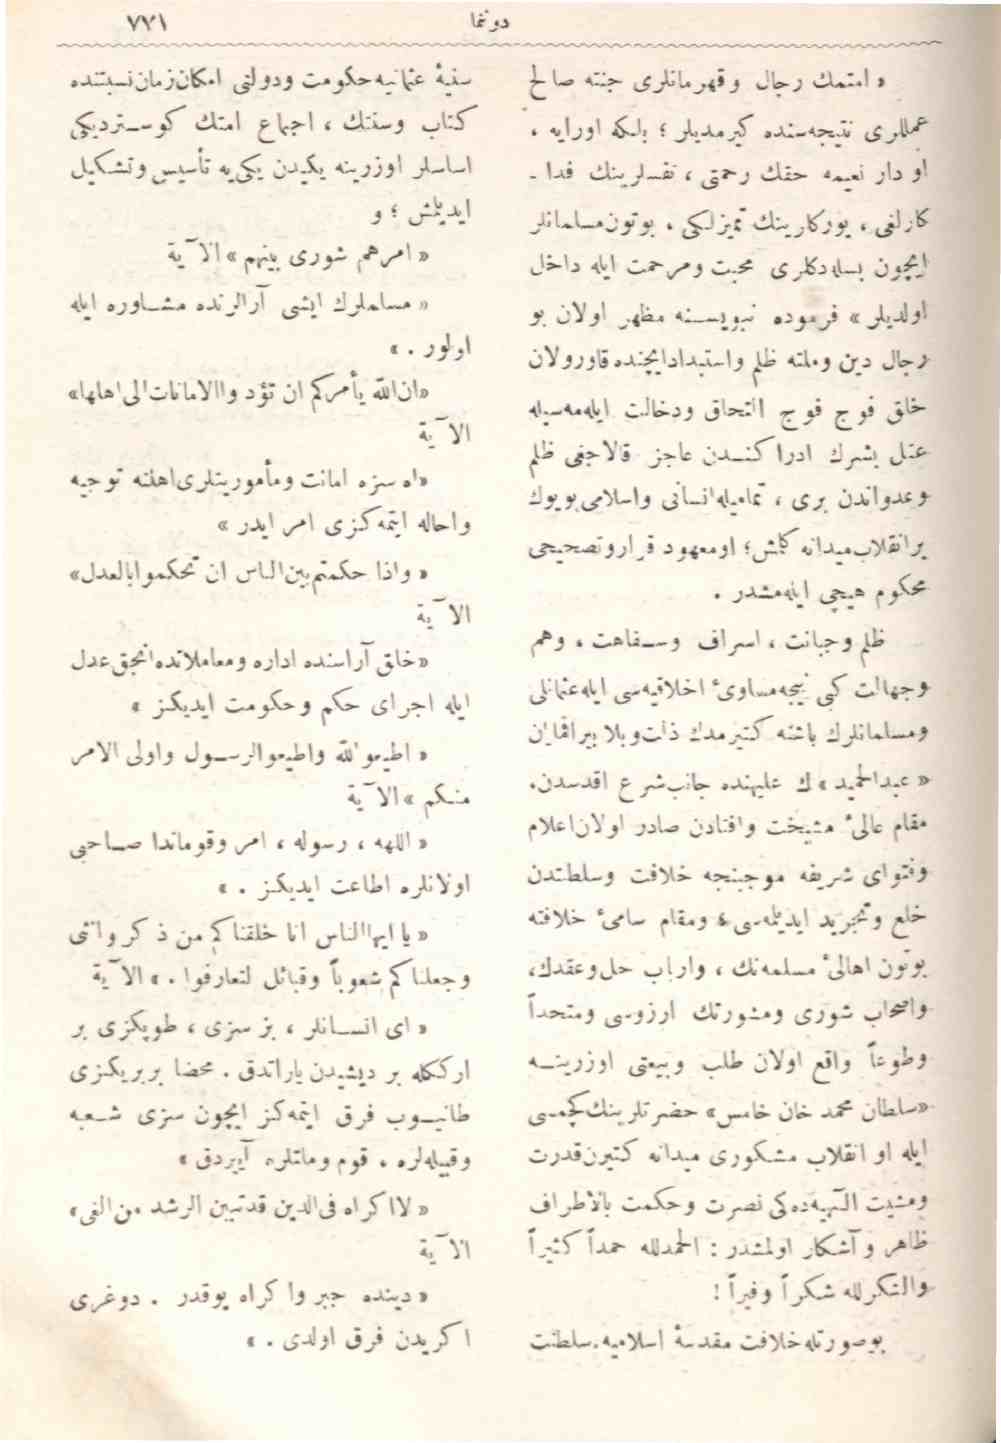 دوننما
٧٧١
« امتمك رجال و قهرمانلری جنته صالح
عمللری نتیجه‌سنده کیرمدیلر ؛ بلکه اورایه ،
او دار نعیمه حقك رحمتی ، نفسلرینك فدا ـ
کارلغی ، یورکلرینك تمیزلکی ، بوتون مسلمانلر
ایچون بسله‌دکلری محبت و مرحمت ایله داخل
اولدیلر » فرموده نبویسـنه مظهر اولان بو
رجال دین و ملته ظلم و استبداد ایچنده قاورولان
خلق فوج فوج التحاق و دخالت ایله‌مه‌سیله
عقل بشرك ادراکـندن عاجز قالاجغی ظلم
وعدواندن بری ، تمامیله انسانی و اسلامی بویوك
بر انقلاب میدانه کلمش؛ او معهود قرار و تصحیحی
محکوم هیچی ایله‌مشدر .
ظلم و جبانت ، اسراف وسـفاهت ، وهم
وجهالت کبی نیجه مساوئ اخلاقیه‌سی ایله عثمانلی
ومسلمانلرك باشنه کتیرمدك ذلت و بلا بیراقمایان
« عبدالحمید » ك علیهنده جانب شرع اقدسدن،
مقام عالئ مشیخت و افتادن صادر اولان اعلام
وفتوای شریفه موجبنجه خلافت و سلطنتدن
خلع و تجرید ایدیلمه‌سی و مقام سامئ خلافته
بوتون اهالئ مسلمه‌نك ، وارباب حل و عقدك،
واصحاب شوری و مشورتك ارزوسی و متحداً
وطوعاً واقع اولان طلب و بیعتی اوزرینـه
«سلطان محمد خان خامس» حضرتلرینك کچمسی
ایله او انقلاب مشکوری میدانه کتیرن قدرت
ومشیت الٓهیه‌ده‌کی نصرت و حکمت بالاطراف
ظاهر و آشکار اولمشدر : الحمدلله حمداً کثیراً
والشکر لله شکراً وفیراً !
بو صورتله خلافت مقدسهٔ اسلامیه ، سلطنت
سنیهٔ عثمانیه حکومت و دولتی امکان زمان نسبتنده
کتاب وسنتك ، اجماع امتك کوسـتردیکی
اساسلر اوزرینه یکیدن یکی‌یه تأسیس و تشکیل
ایدیلمش ؛ و
« امرهم شوری بینهم » الآیة
« مسلملرك ایشی آرالرنده مشـاوره ایله
اولور . »
« ان الله یأمرکم ان تؤد واالامانات الی اهلها »
الآیة
« الله سزه امانت و مأموریتلری اهلنه توجیه
واحاله ایتمه‌کزی امر ایدر »
« واذا حکمتم بین الناس ان تحکموا بالعدل »
الآیة
« خلق آراسنده اداره و معاملاتده انجق عدل
ایله اجرای حکم و حکومت ایدیکـز »
« اطیعوالله واطیعوالرسـول واولی الامر
منـکم » الآیة
« اللهه ، رسوله ، امر و قوماندا صـاحبی
اولانلره اطاعت ایدیکـز . »
« یا ایها الناس انا خلقناکم من ذکر وانثی
وجعلناکم شعوباً وقبائل لتعارفوا . » الآیة
« ای انسـانلر ، بز سزی ، طوپکزی بر
ارککله بر دیشیدن یاراتدق . محضا بربریکـزی
طانیـوب فرق ایتمه‌کز ایچون سزی شـعبه
وقبیله‌لره ، قوم و ملتلره آیردق »
« لا اکراه فی الدین قدتبین الرشد من الغی »
الآیة
« دینده جبر و اکراه یوقدر . دوغری
اکریدن فرق اولدی . »